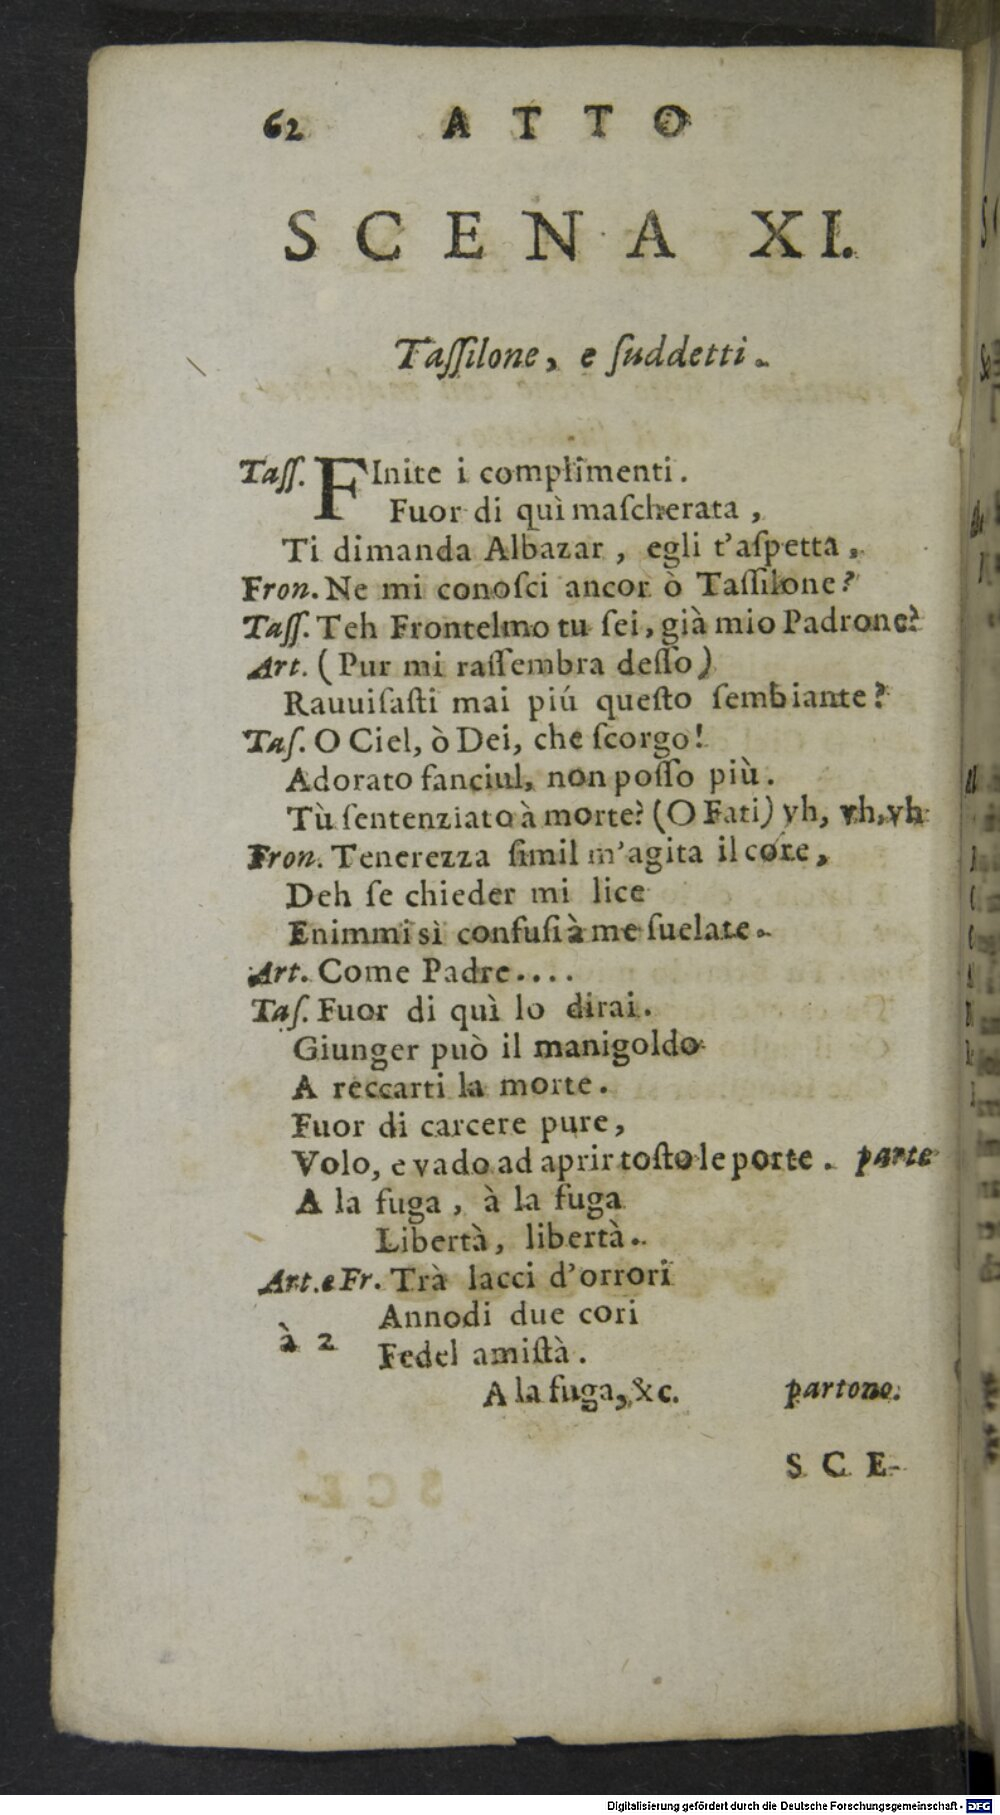 62 ATTO
SCENA XI.
Taſſilone, e ſuddetti.
Taſſ. FInite i complimenti.
Fuor di quì maſcherata,
Ti dimanda Albazar, egli t'aſpetta.
Fron. Ne mi conoſci ancor ò Taſſilone?
Taſſ. Teh Frontelmo tu ſei, già mio Padrone?
Art. (Pur mi raſſembra deſſo)
Rauuiſaſti mai piú queſto ſembiante?
Taſ. O Ciel, ò Dei, che ſcorgo!
Adorato fanciul, non poſſo più.
Tù ſentenziato à morte? (O Fati) vh, vh, vh
Fron. Tenerezza ſimil m'agita il core,
Deh ſe chieder mi lice
Enimmi sì confuſi à me ſuelate.
Art. Come Padre....
Taſ. Fuor di quì lo dirai.
Giunger può il manigoldo
A reccarti la morte.
Fuor di carcere pure,
Volo, e vado ad aprir toſto le porte. parte
A la fuga, à la fuga
Libertà, libertà..
Art. e Fr. Trà lacci d'orrori
Annodi due cori
à 2 Fedel amiſtà.
A la fuga, &c. partono.
SCE-
Digitalisierung gefördert durch die Deutsche Forschungsgemeinschaft - DFG